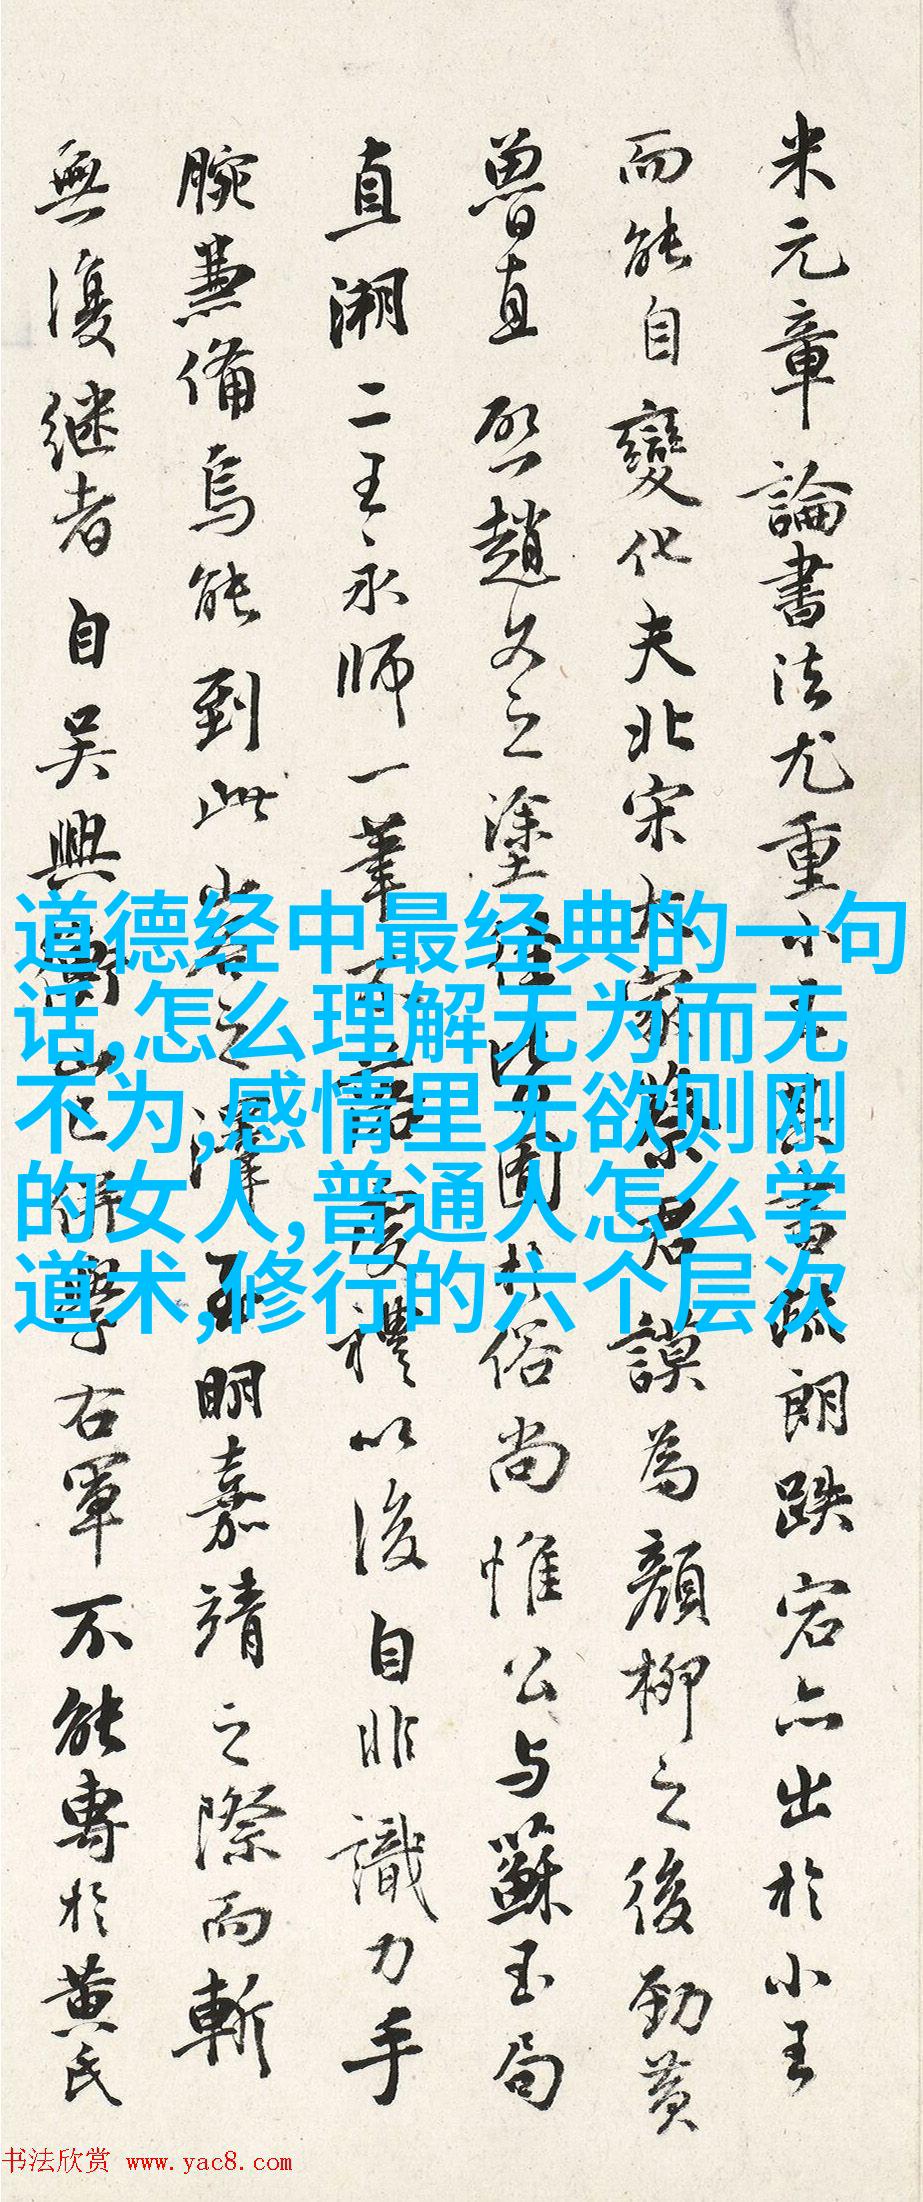 米元章論書法尤重小王其書疏朗跌宕亦出於小王
而能自變化夫北宋大家蔡君謨為顏柳之後勁黃
魯直啓趙文之塗徑囿於俗尚惟公与蘇玉局
直溯二王永師一筆不禮以後自非識力手
腕兼備烏能到此之澤至明嘉靖之際而斬
無復継者自吳興衡山已學右軍不能專於黃氏
道德经中最经典的一句
话,怎么理解无为而无
不为,感情里无欲则刚
的女人,普通人怎么学
道术,修行的六个层次
书法欣赏 www.yac8.com